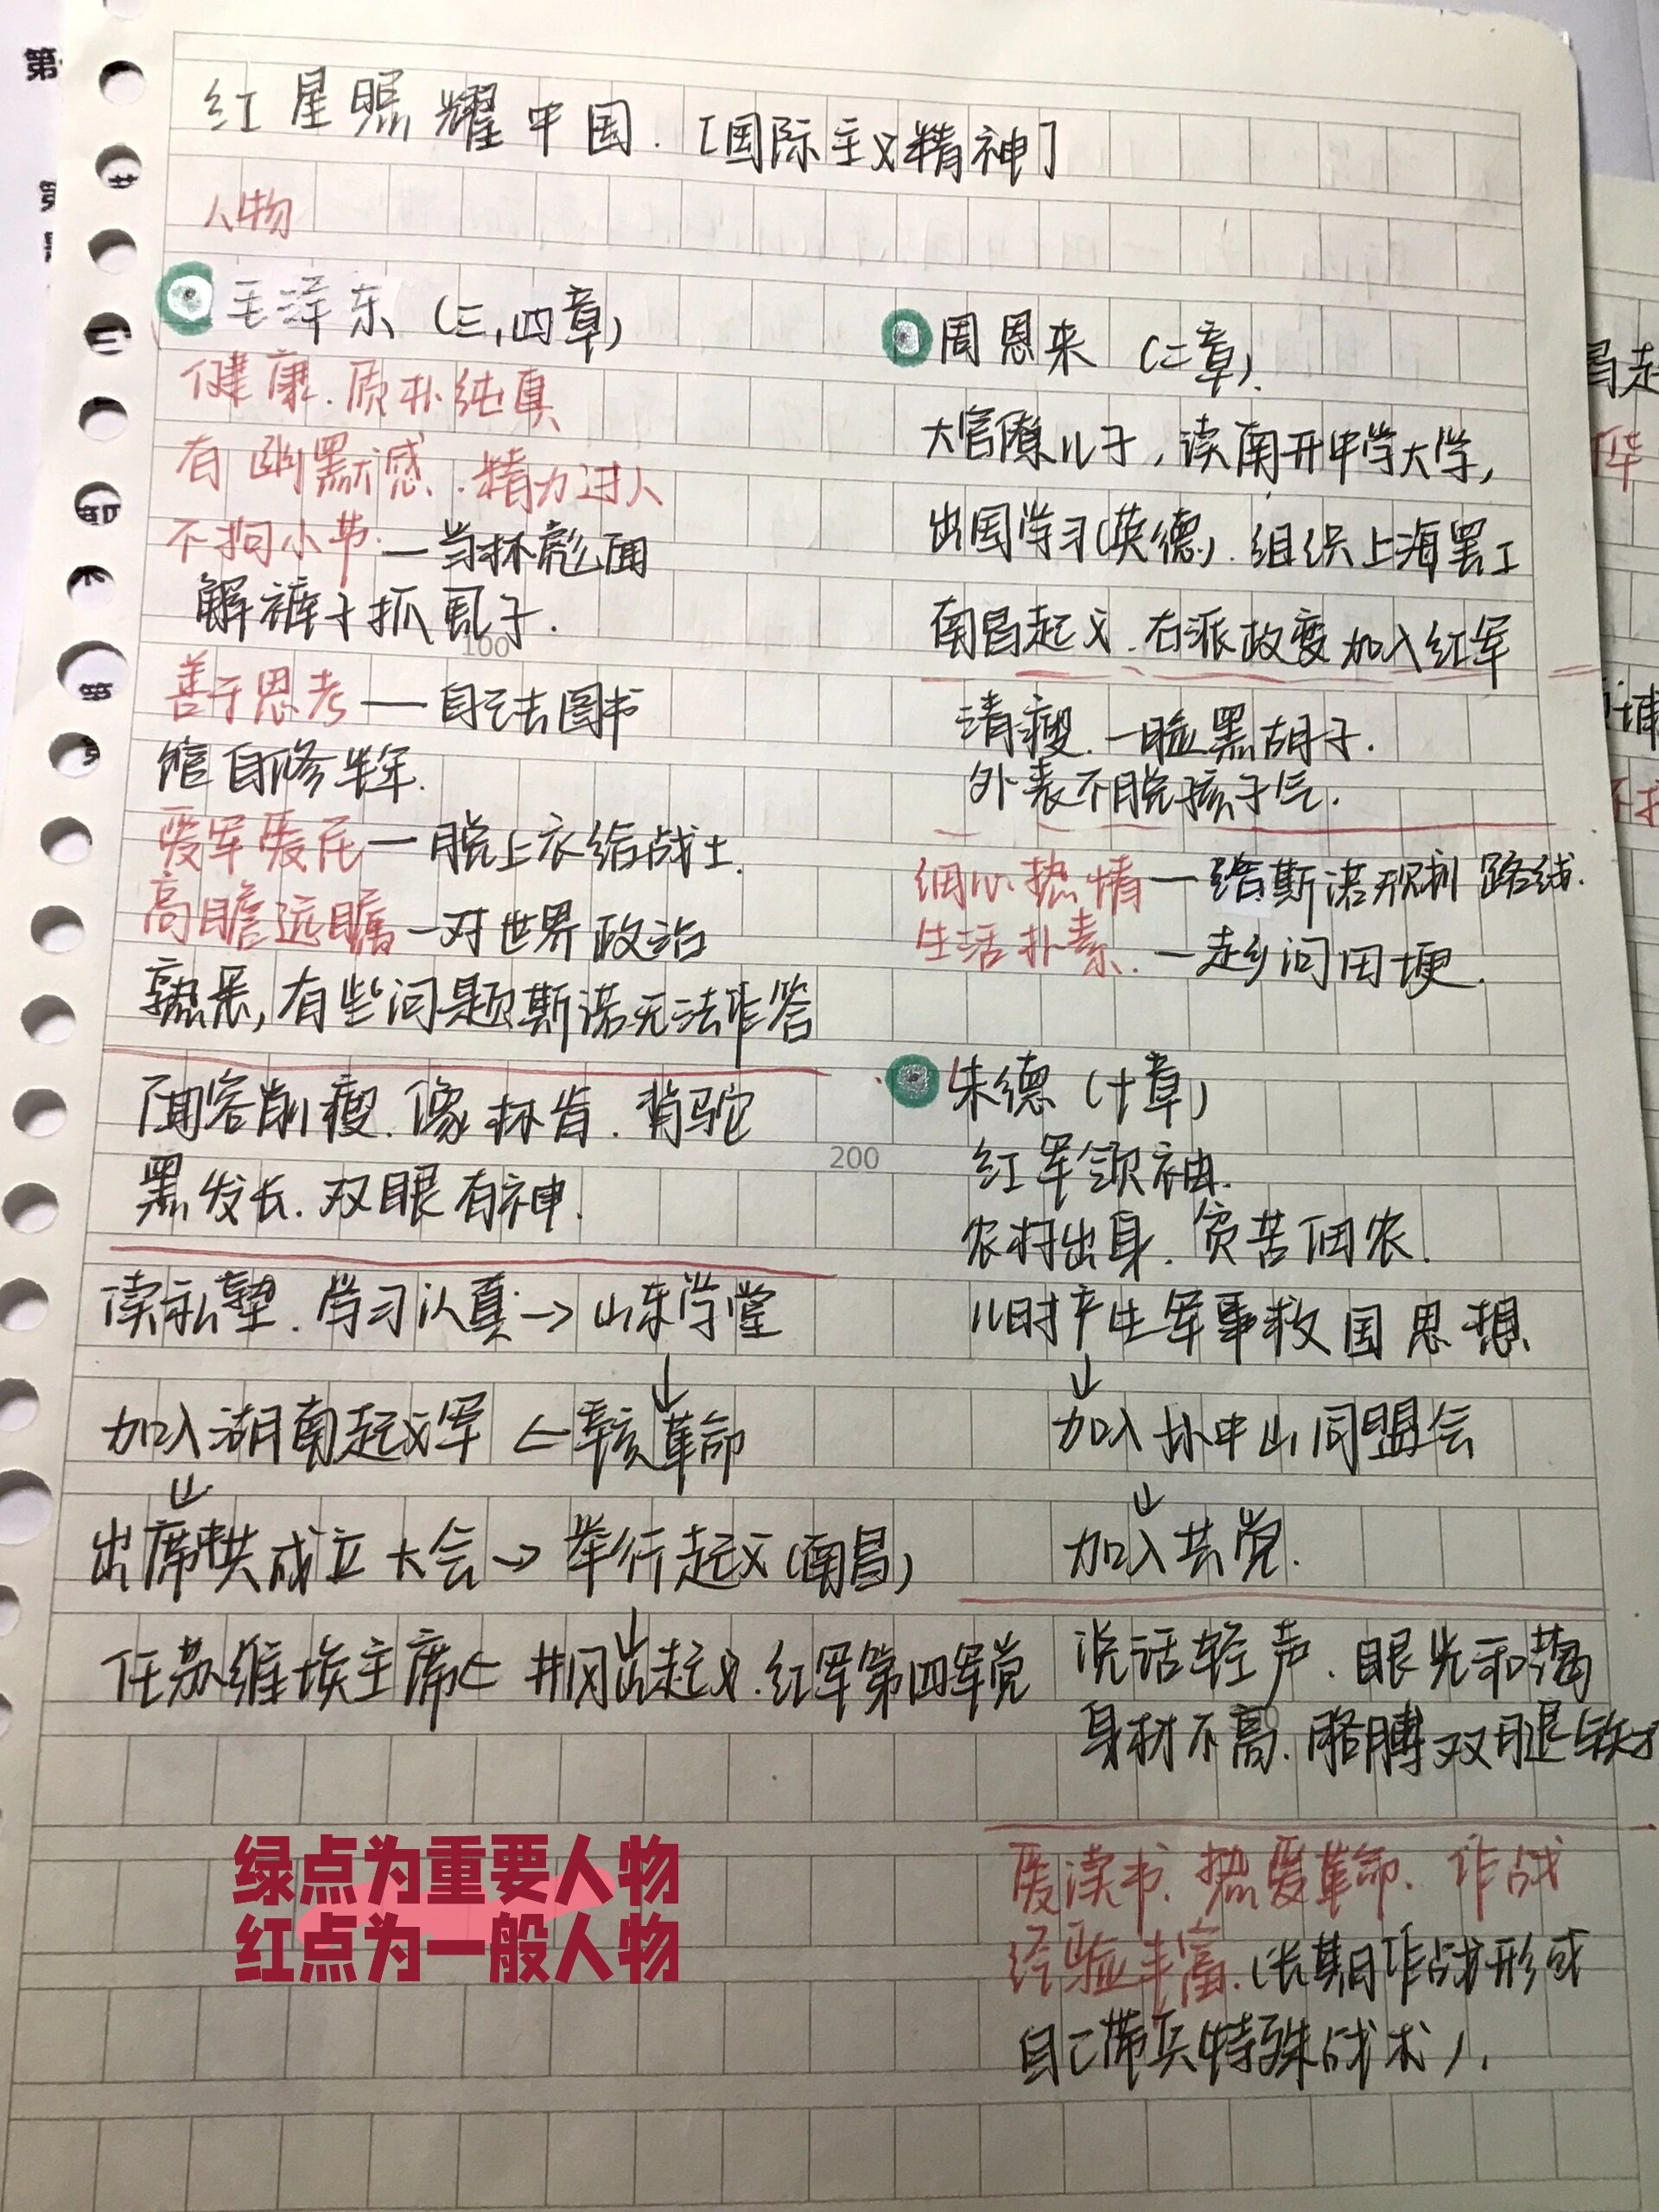 红星照耀中国.[国际主义精神]
人物
毛泽东(三,四章)
健康.质朴纯真
有幽默感.精力过人
不拘小节.—当林彪面
解裤子抓虱子.
100
善于思考—自己去图书
馆自修半年.
爱军爱民—脱上衣给战士.
高瞻远瞩—对世界政治
熟悉,有些问题斯诺无法作答
面容削瘦.像林肯.背驼
200
黑发长.双眼有神.
读私塾.学习认真→山东学堂
↓
加入湖南起义军←辛亥革命
↓
出席中共成立大会→举行起义(南昌)
↓
任苏维埃主席←井冈山起义.红军第四军党
周恩来(二章).
大官僚儿子,读南开中学大学,
出国学习(英德).组织上海罢工
南昌起义.右派政变加入红军
清瘦.一脸黑胡子.
外表不脱孩子气.
细心热情—给斯诺规划路线.
生活朴素.—走乡间田埂.
朱德(十章)
红军领袖.
农村出身.贫苦佃农.
儿时产生军事救国思想
↓
加入孙中山同盟会
↓
加入共党.
说话轻声.眼光和蔼
身材不高.胳膊双腿铁打
爱读书.热爱革命.作战
经验丰富.(长期作战形成
自己带兵特殊战术).
绿点为重要人物
红点为一般人物